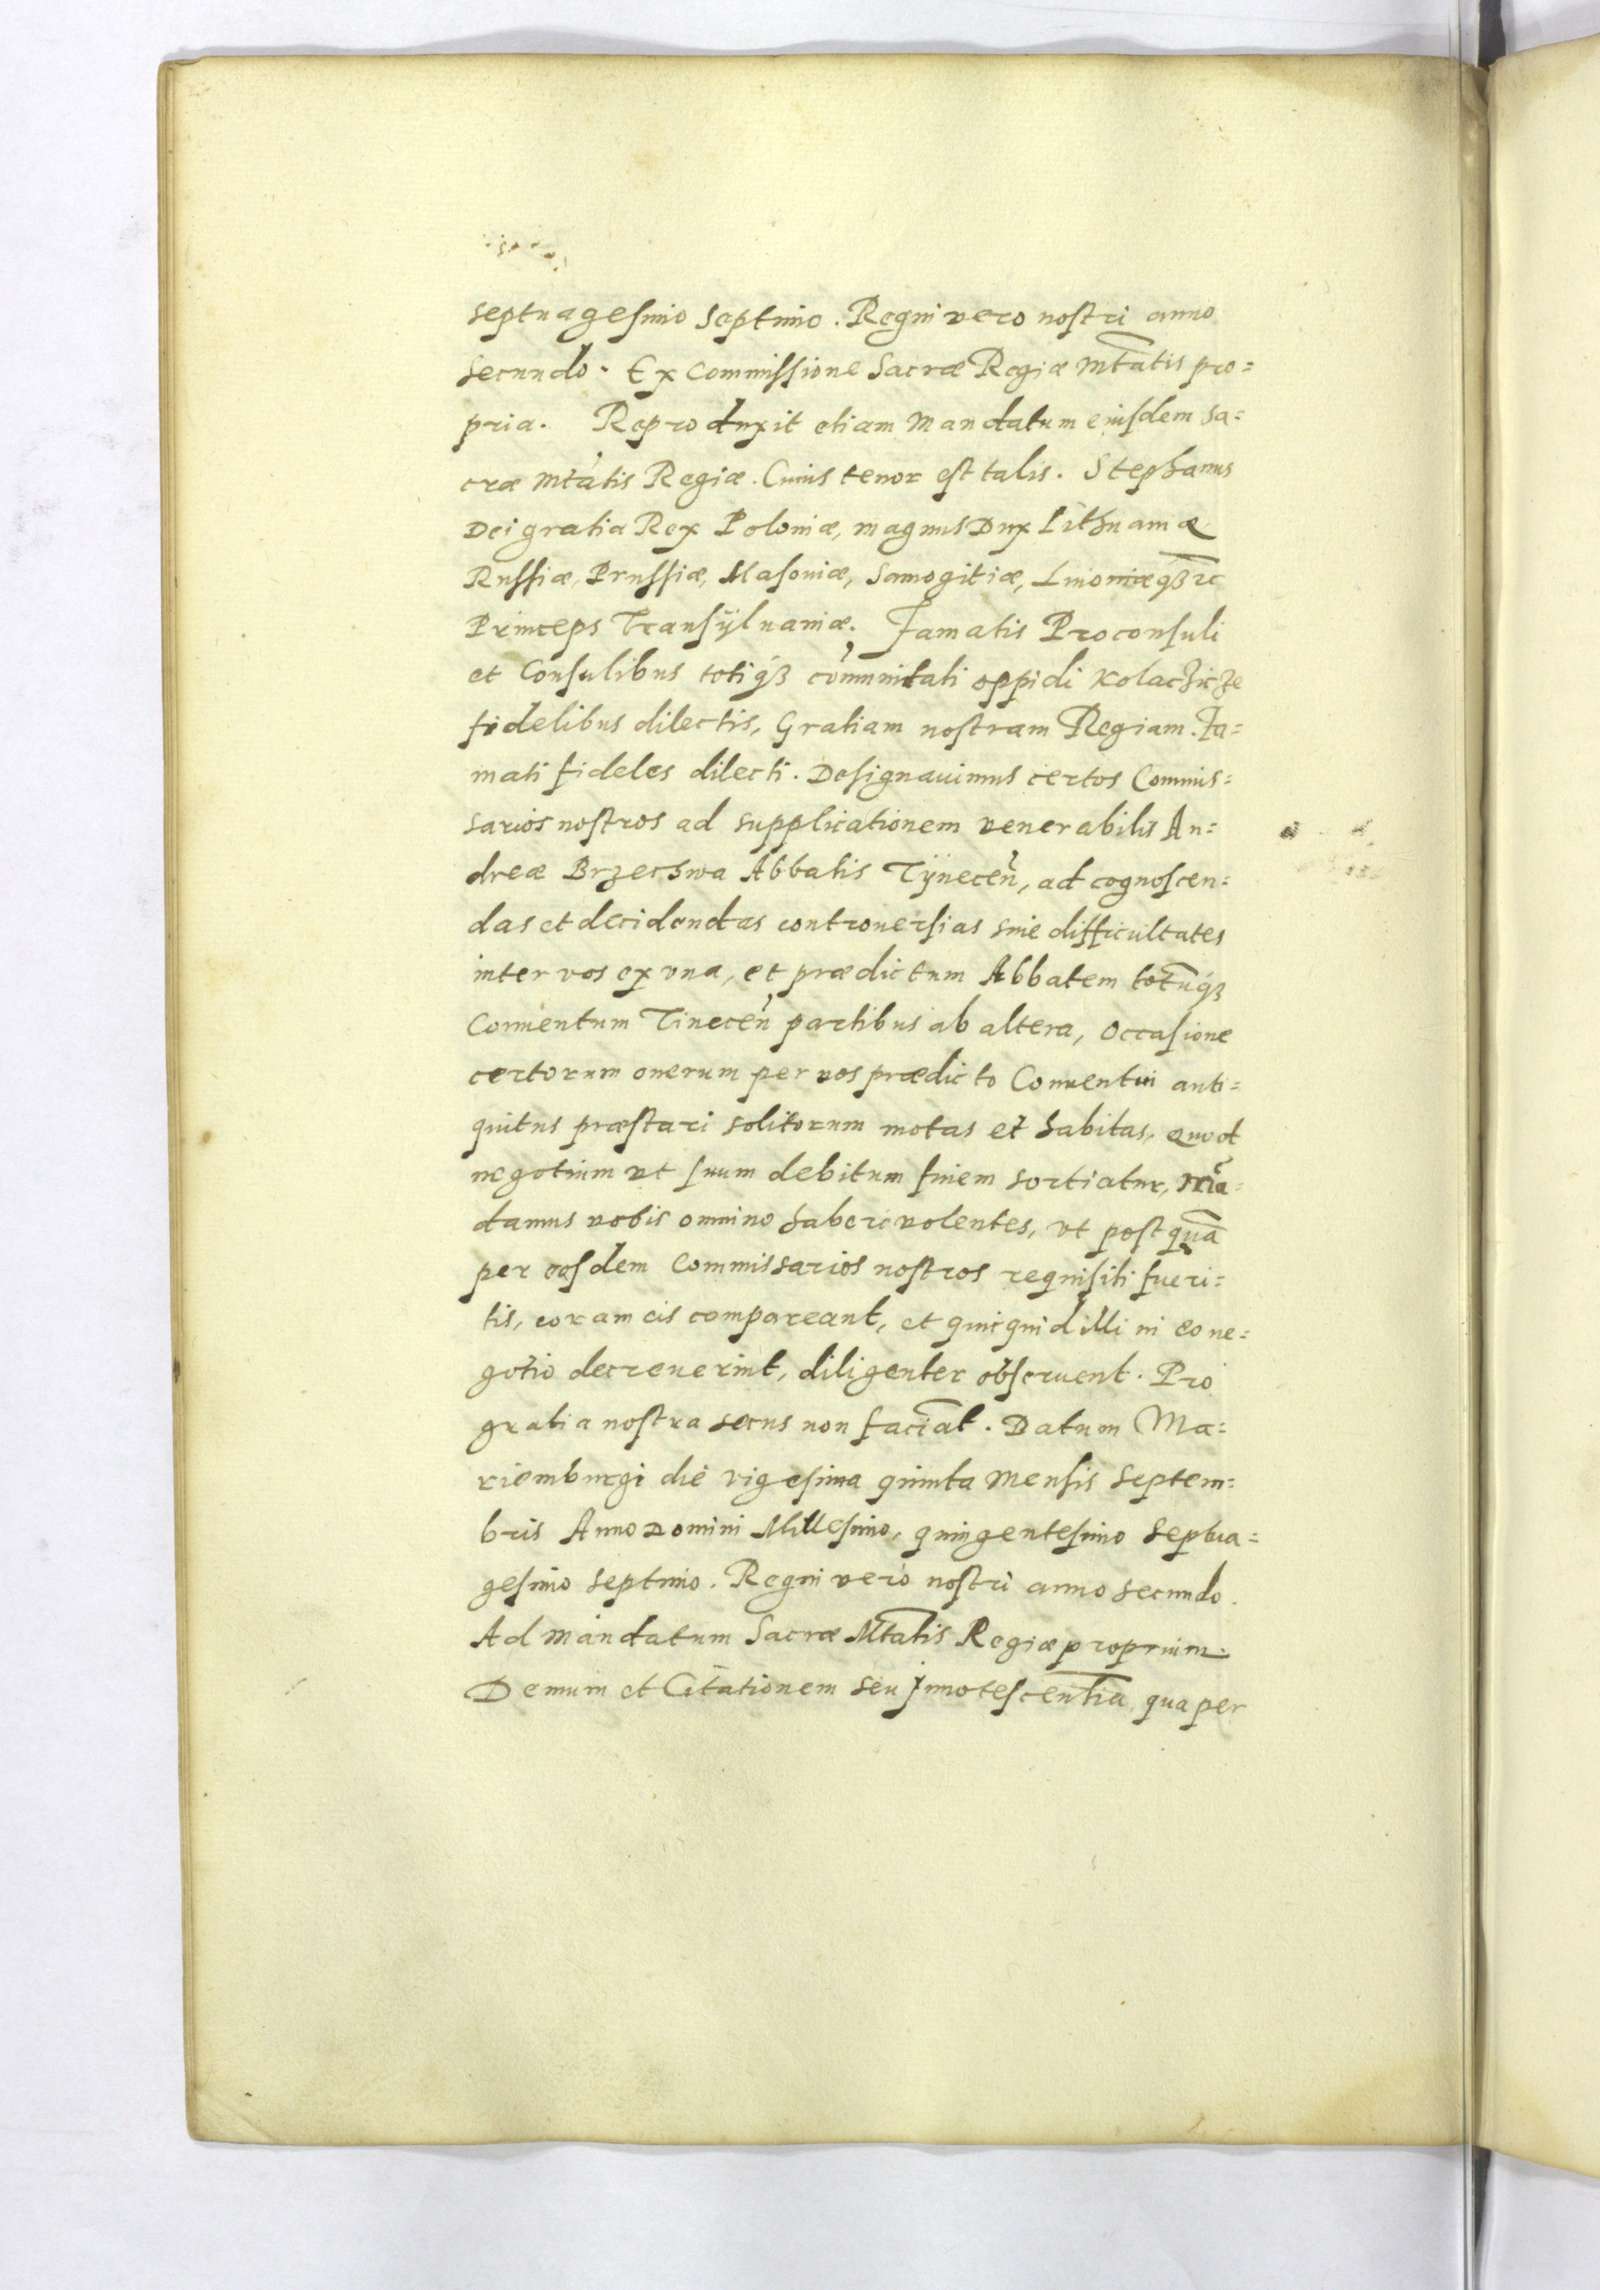 septuagesimo septimo. Regni vero nostri anno
secundo. Ex Commissione Sacræ Regiæ Mtatis pro=
pria. Reproduxit etiam Mandatum eiusdem sa=
cræ Mtatis Regiæ. Cuius tenor est talis. Stephanus
Dei gratia Rex Poloniæ, magnus Dux Lithuaniæ
Russiæ, Prussiæ, Masoniæ, Samogitiæ, Liuoniæqꝫ ꝛc
Princeps Transÿluaniæ. Famatis Proconsuli
et Consulibus totiqꝫ cõmunitati oppidi Kolaczicze
fidelibus dilectis, Gratiam nostram Regiam. Fa=
mati fideles dilecti. Designauimus certos Commis=
sarios nostros ad supplicationem venerabilis An=
dreæ Brzechwa Abbatis Tÿneceñ, ad cognoscen=
das et decidendas controuersias siue difficultates
inter vos ex vna, et prædictum Abbatem totũqꝫ
Conuentum Tineceñ partibus ab altera, Occasione
certorum onerum per vos prædicto Conuentui anti=
quitus præstari solitorum motas et habitas, Quod
negotium vt suum debitum finem sortiatur, Mã=
damus vobis omnino habere volentes, vt postquã
per eosdem Commissarios nostros requisiti fueri=
tis, coram eis compareant, et quicquid illi in eo ne=
gotio decreuerint, diligenter obseruent. Pro
gratia nostra secus non faciãt. Datum Ma=
riemburgi die vigesima quinta Mensis Septem=
bris Anno Domini Millesimo, quingentesimo Septua=
gesimo septimo. Regni vero nostri anno secundo.
Ad mandatum Sacræ Mtatis Regiæ proprium.
Demum et Citationem seu Jnnotescentiã qua per